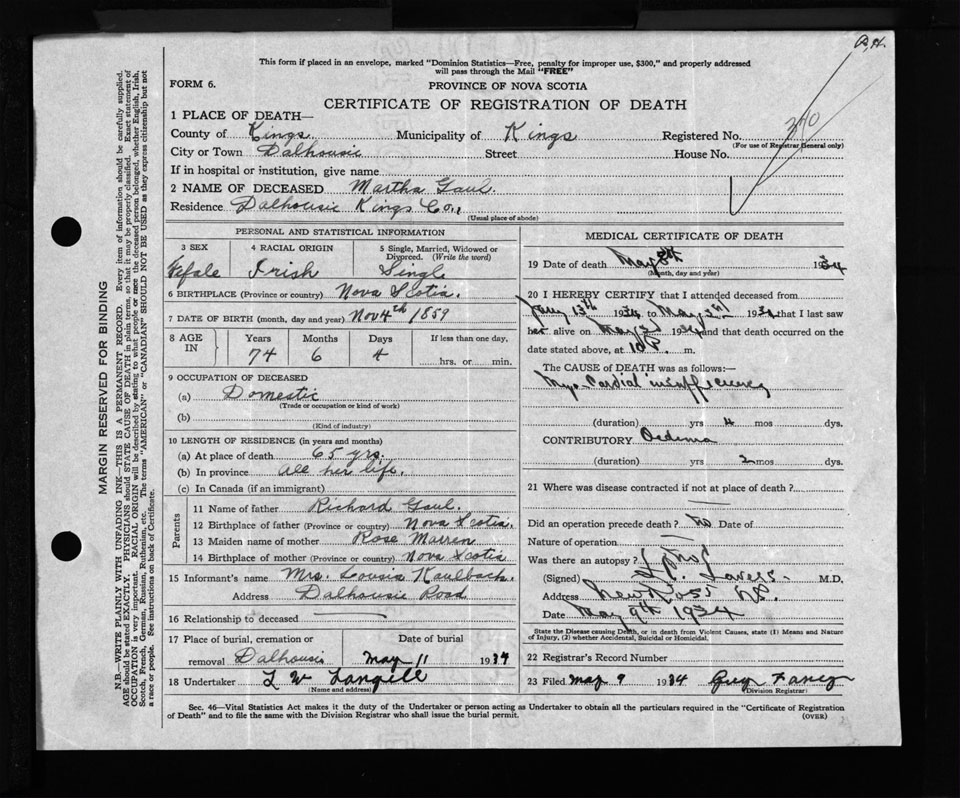 P.H.
This form if placed in an envelope, marked "Dominion Statistics—Free, penalty for improper use, $300," and properly addressed
will pass through the Mail "FREE"
FORM 6.
PROVINCE OF NOVA SCOTIA
CERTIFICATE OF REGISTRATION OF DEATH
1 PLACE OF DEATH—
County of Kings Municipality of Kings Registered No.
(For use of Registrar General only)
City or Town Dalhousie Street House No.
If in hospital or institution, give name
2 NAME OF DECEASED Martha Gaul.
Residence Dalhousie Kings Co.,
(Usual place of abode)
PERSONAL AND STATISTICAL INFORMATION
3 SEX 4 RACIAL ORIGIN 5 Single, Married, Widowed or Divorced. (Write the word)
Irish Single
6 BIRTHPLACE (Province or country) Nova Scotia.
7 DATE OF BIRTH (month, day and year) Nov 4th 1859
8 AGE IN Years Months Days If less than one day,
74 6 4 hrs. or min.
9 OCCUPATION OF DECEASED
(a) Domestic
(Trade or occupation or kind of work)
(b)
(Kind of industry)
10 LENGTH OF RESIDENCE (in years and months)
(a) At place of death 65 yrs.
(b) In province all her life.
(c) In Canada (if an immigrant)
Parents
11 Name of father Richard Gaul.
12 Birthplace of father (Province or country) Nova Scotia.
13 Maiden name of mother Rose Marren
14 Birthplace of mother (Province or country) Nova Scotia
15 Informant's name Mrs. Lousia Kaulback.
Address Dalhousie Road
16 Relationship to deceased
17 Place of burial, cremation or Date of burial
removal Dalhousie May 11 1934
18 Undertaker L W Langill
(Name and address)
MEDICAL CERTIFICATE OF DEATH
19 Date of death May 8th 1934
(Month, day and year)
20 I HEREBY CERTIFY that I attended deceased from
Jany 13th 1934 to May 3rd 1934 that I last saw
her alive on May 3 1934 and that death occurred on
date stated above, at 10 P. m.
The CAUSE OF DEATH was as follows:—
Myo Cardial insufficiency
(duration) yrs 4 mos dys.
CONTRIBUTORY Oedema
(duration) yrs 2 mos dys.
21 Where was disease contracted if not at place of death?
Did an operation precede death? no Date of
Nature of operation
Was there an autopsy? no
(Signed) Lavers. M.D.
Address New Ross NS.
Date May 9th 1934
State the Disease causing Death, or in death from Violent Causes, state (1) Means and Nature
of Injury, (2) whether Accidental, Suicidal or Homicidal.
22 Registrar's Record Number
23 Filed May 9 1934
Division Registrar)
Sec. 46—Vital Statistics Act makes it the duty of the Undertaker or person acting as Undertaker to obtain all the particulars required in the "Certificate of Registration
of Death" and to file the same with the Division Registrar who shall issue the burial permit. (OVER)
MARGIN RESERVED FOR BINDING
N.B.—WRITE PLAINLY WITH UNFADING INK—THIS IS A PERMANENT RECORD. Every item of information should be carefully supplied.
AGE should be stated EXACTLY. PHYSICIANS should STATE CAUSE OF DEATH in plain terms, so that it may be properly classified. Exact statement of
OCCUPATION is very important. RACIAL ORIGIN will be described by stating to what people or race the deceased person belonged, whether English, Irish,
Scotch, French, German, Russian, Ruthenian, etc. The terms "AMERICAN" or "CANADIAN" SHOULD NOT BE USED as they express citizenship but not
a race or people. See instructions on back of Certificate.